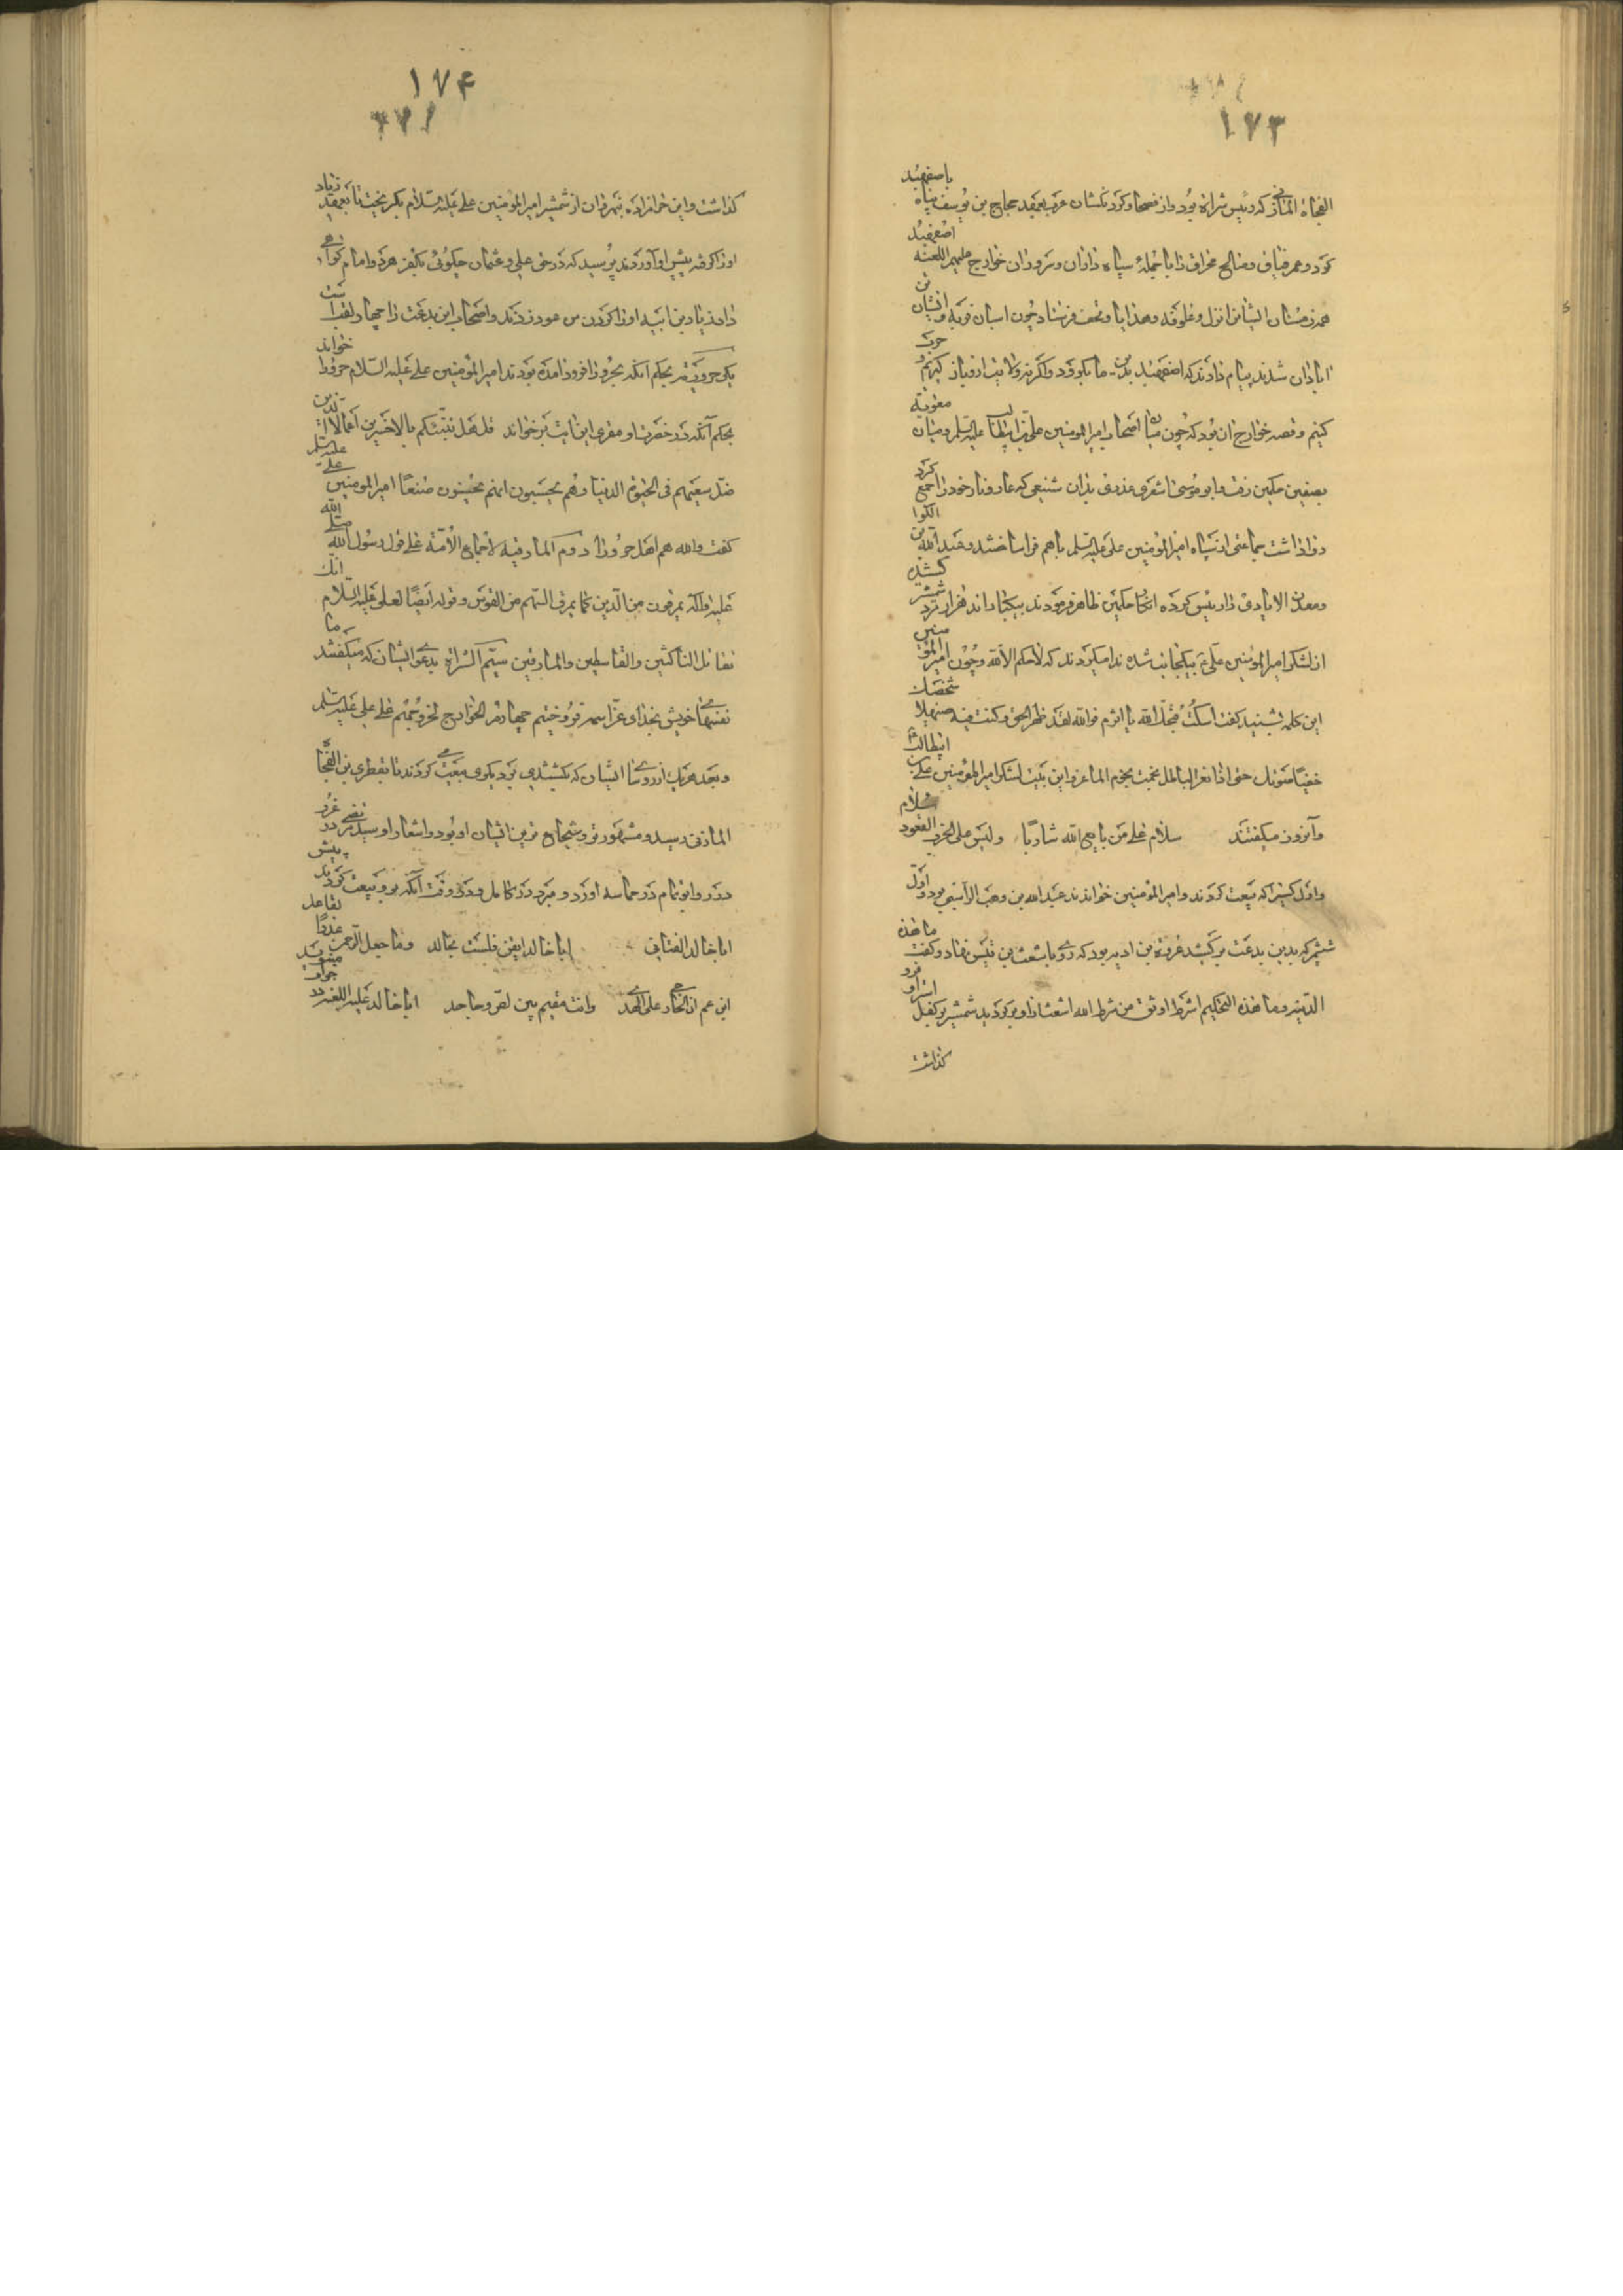 ١٧٣
الفجاة المازنی که رئیس شراة بود و از فصحا و گردنکشان عرب بعهد حجاج بن یوسف پناه باصفهبد
کرد و عمر فناق و صالح مخراق را با جمله سپاه داران و سروران خوارج علیهم اللعنه اصفهبد
همه زمستان ایشانرا نزل و علوفه و هدایا و تحف فرستاد چون اسبان فربه و ایشان تن
ابادان شدند پیام دادند که اصفهبد بدین ما بگرود و اگر نه ولایت ازو باز گیریم و حرب
کنیم و قصه خوارج ان بود که چون میان اصحاب امیرالمومنین علی بن ابیطالب علیه السلم و میان معویة
بصفین حکمین رفت و ابو موسی اشعری عذری بدان شنیعی که عار و نار خود را جمع کرد
روا داشت جماعتی از سپاه امیرالمؤمنین علی علیه السلم باهم فراساختند و عبدالله بن الکوا
و معدان الایادی را رئیس کرده انکار حکمین ظاهر فرمودند بیکبار اند هزار مرد شمشیر کشیده
از لشکر امیرالمؤمنین علی ع بیکجانب شده ندا میکردند که لاحکم الا لله و چون امیرالمؤمنین
این کلمه بشنید گفت اسکت قبحک الله یا اثرم فوالله لقد ظهر الحق و کنت فیه ضئیلا شخصک
خفیا صوتک حتی اذا نعر الباطل نجمت نجوم الماعز و این بیت لشکر امیرالمؤمنین علی بن ابیطالب
و آنروز میگفتند سلام علی من بایع الله شاریا ولیس علی الحزب القعود سلام
و اول کسیرا که بیعت کردند و امیرالمؤمنین خواندند عبدالله بن وهب الراسبی بود و اول
شمشیر که بدین بدعت برکشید عروة بن ادیه بود که روی باشعث بن قیس نهاد و گفت ما هذه
الدنیه و ما هذه التحکیم اشرط اوثق من شرط الله اشعث را و برگردید شمشیر بر کفل استر او فرو
گذاشت
١٧۴
گذاشت و این حرامزاده بنهروان از شمشیر امیرالمؤمنین علی علیه السلام بگریخت تا بعهد زیاد
اورا گرفته پیش او آوردند پرسید که در حق علی و عثمان چگوئی بکفر هردو امام گواهی
داد زیاد بن ابیه اورا گردن من عود زدند و اصحاب این بدعت را چهار لقب است
یکی حروریه بحکم آنکه بحرورا فرود آمده بودند امیرالمؤمنین علی علیه السلام حرورا خواند
بحکم آنکه در حضرت او مقری این آیت بر خواند قل هل ننبئکم بالاخسرین اعمالا الذین
ضل سعیهم فی الحیوة الدنیا و هم یحسبون انهم یحسنون صنعا امیرالمومنین علی علیه السلم
گفت والله هم اهل حرورا دوم المارقیه لاجماع الأمة علی قول رسول الله صلی الله
علیه و آله یمرقون من الدین کما یمرق السهم من القوس و قوله ایضا لعلی علیه السلام انک
تقاتل الناکثین و القاسطین و المارقین سیم الشراة بدعوی ایشان که میگفتند ما
نفسهای خویش بخدای عز اسمه فروختیم چهارم الخوارج لخروجهم علی علی علیه السلم
و بعد هریک از رؤسا ایشان که بکشتندی بدیگری بیعت کردندی تا بقطری بن الفجا
المازنی رسید و مشهورتر و شجاع ترین ایشان او بود و اشعار او سید مرتضی در غرر
درر و ابو تمام در حماسه اورد و مبرد در کامل و در وقت آنکه برو بیعت کردند پیش
ابا خالد القنانی ابا خالد ایقن فلست بخالد و ما جعل الرحمن عذرا لقاعد
اتزعم ان الخارجی علی الهدی و انت مقیم بین لص و جاحد ابا خالد علیه اللعنه در جواب